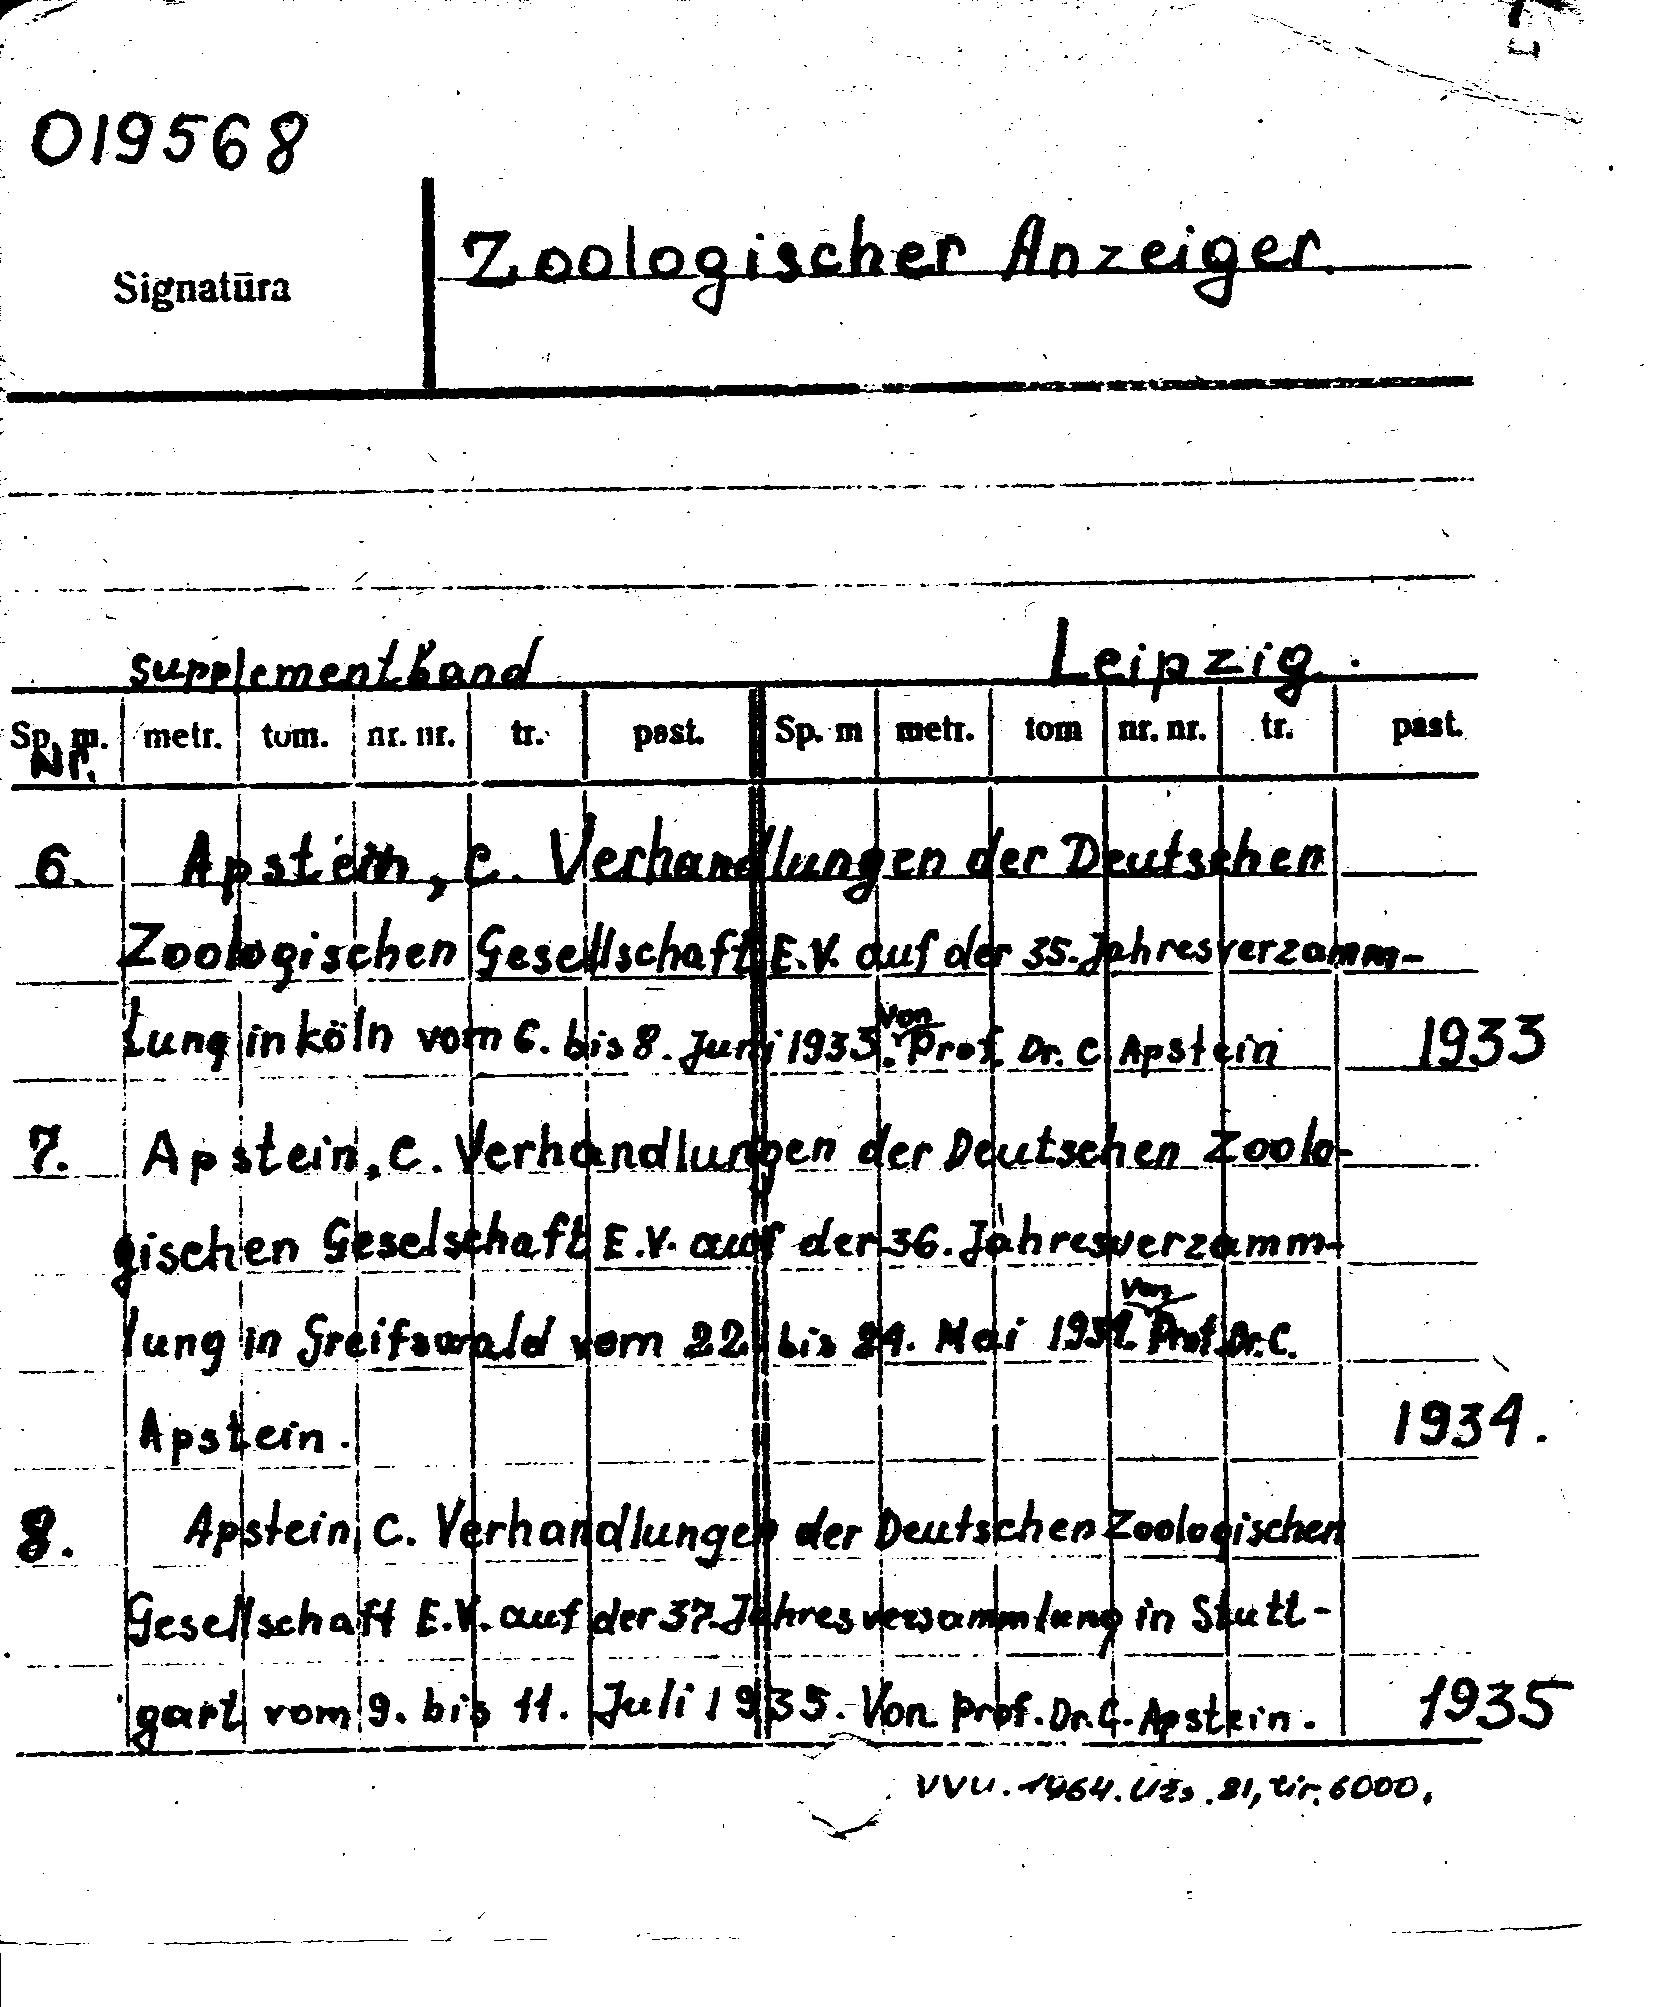 019568
Zoologischer Anzeiger.
Signatūra
supplementband Leipzig.
Sp. m. metr. tom. nr. nr. tr. past. Sp. m metr. tom nr. nr. tr. past.
Nr.
6. Apstein, C. Verhandlungen der Deutschen
Zoologischen Gesellschaft E.V. auf der 35. Jahresverzamm-
lung in köln vom 6. bis 8. Juni 1933. von Prof. Dr. C. Apstein 1933
7. Apstein, C. Verhandlungen der Deutschen Zoolo-
gischen Geselschaft E.V. auf der 36. Jahresverzamm-
lung in Greifswald vom 22. bis 24. Mai 1934. von Prof. Dr. C.
Apstein. 1934.
8. Apstein, C. Verhandlungen der Deutschen Zoologischen
Gesellschaft E.V. auf der 37. Jahresversammlung in Stutt-
gart vom 9. bis 11. Juli 1935. Von Prof. Dr. C. Apstein. 1935
VVU. 1964. Užs. 81, tir. 6000.